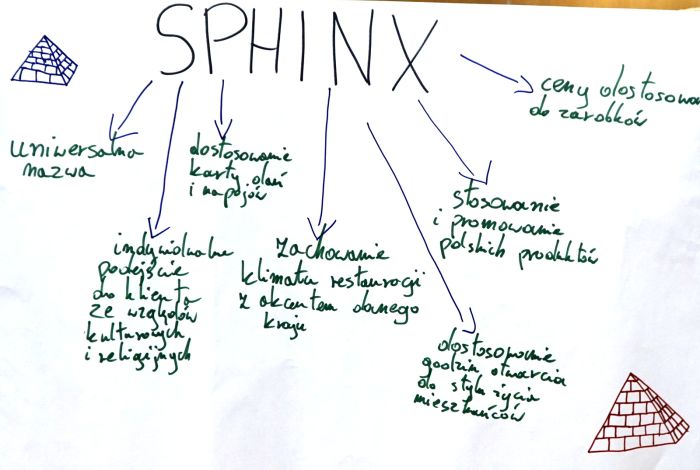 SPHINX
uniwersalna
nazwa
indywidualne
podejście
do klienta
ze względów
kulturowych
i religijnych
dostosowanie
karty dań
i napojów
zachowanie
klimatu restauracji
z akcentem danego
kraju
dostosowanie
godzin otwarcia
do stylu życia
mieszkańców
stosowanie
i promowanie
polskich produktów
ceny dostosowa
do zarobków